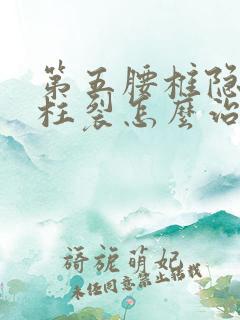 第五腰椎隐
柱裂怎么治
旖旎萌妃
未经同意禁止转载